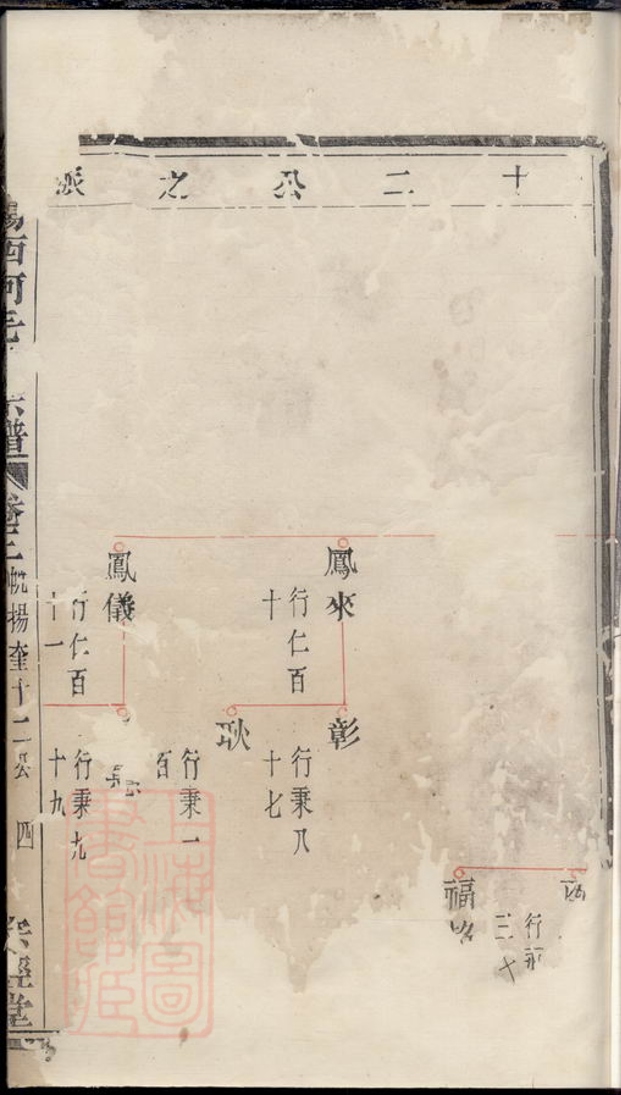 十二公之派
鳳來
行仁百
十
鳳儀
行仁百
十一
彰
行秉八
十七
耿
行秉一
百
行秉九
十九
福
行
三十
西河毛
宗譜
卷二
帆揚奎十二公
四
經堂
上海圖
書館藏